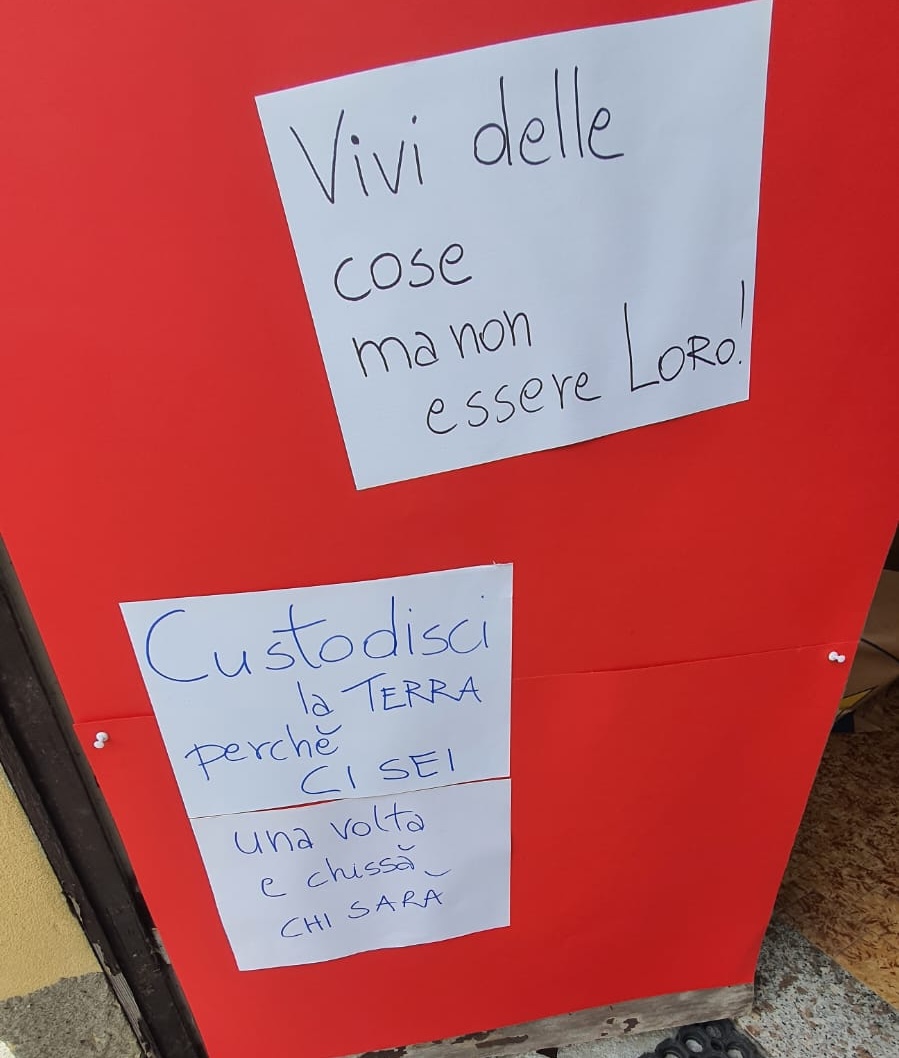 Vivi delle
cose
ma non
essere LORO!
Custodisci
la TERRA
perchĕ
CI SEI
una volta
e chissă
CHI SARĂ